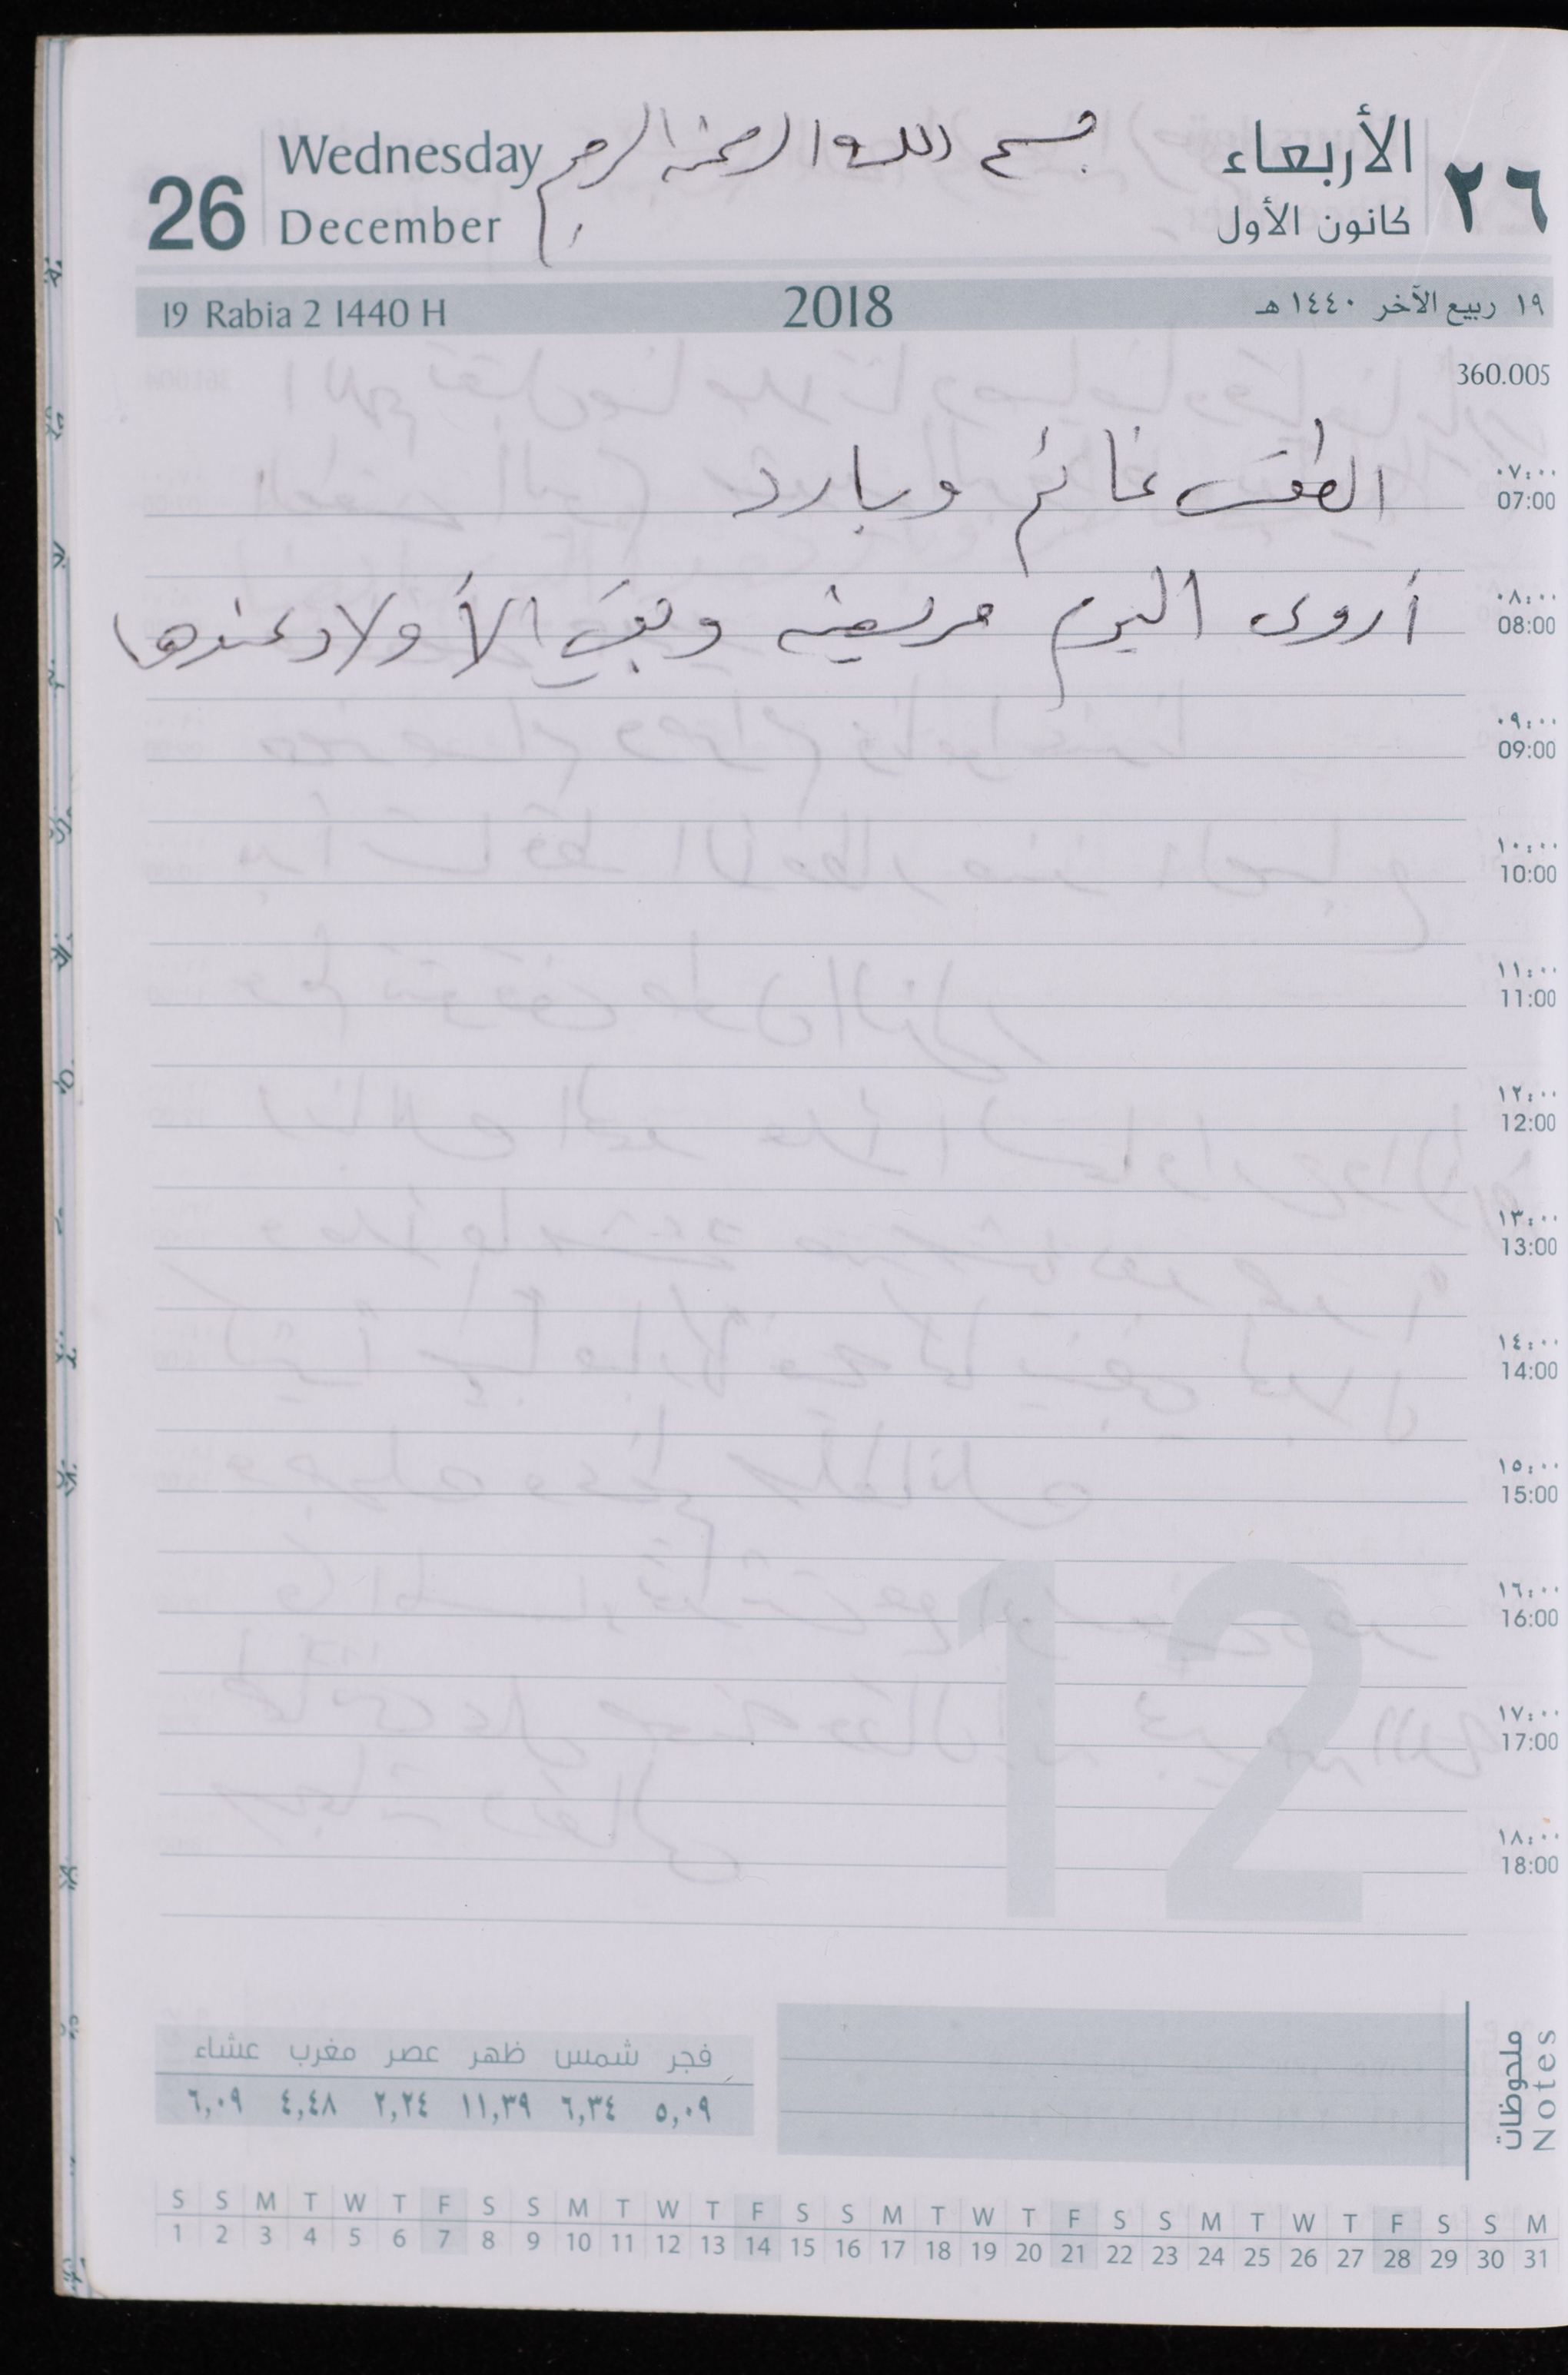 بسم الله الرحمن الرحيم
26 Wednesday December
الأربعاء ٢٦
كانون الأول
19 Rabia 2 1440 H 2018 ١٩ ربيع الآخر ١٤٤٠ هـ
360.005
الطقس غائم وبارد
٠٧:٠٠
07:00
أروى اليوم مريضة وبقي الأولاد عندها
٠٨:٠٠
08:00
٠٩:٠٠
09:00
١٠:٠٠
10:00
١١:٠٠
11:00
١٢:٠٠
12:00
١٣:٠٠
13:00
١٤:٠٠
14:00
١٥:٠٠
15:00
١٦:٠٠
16:00
١٧:٠٠
17:00
١٨:٠٠
18:00
12
ملحوظات
Notes
فجر شمس ظهر عصر مغرب عشاء
٥,٠٩ ٦,٣٤ ١١,٣٩ ٢,٢٤ ٤,٤٨ ٦,٠٩
S S M T W T F S S M T W T F S S M T W T F S S M T W T F S S M
1 2 3 4 5 6 7 8 9 10 11 12 13 14 15 16 17 18 19 20 21 22 23 24 25 26 27 28 29 30 31